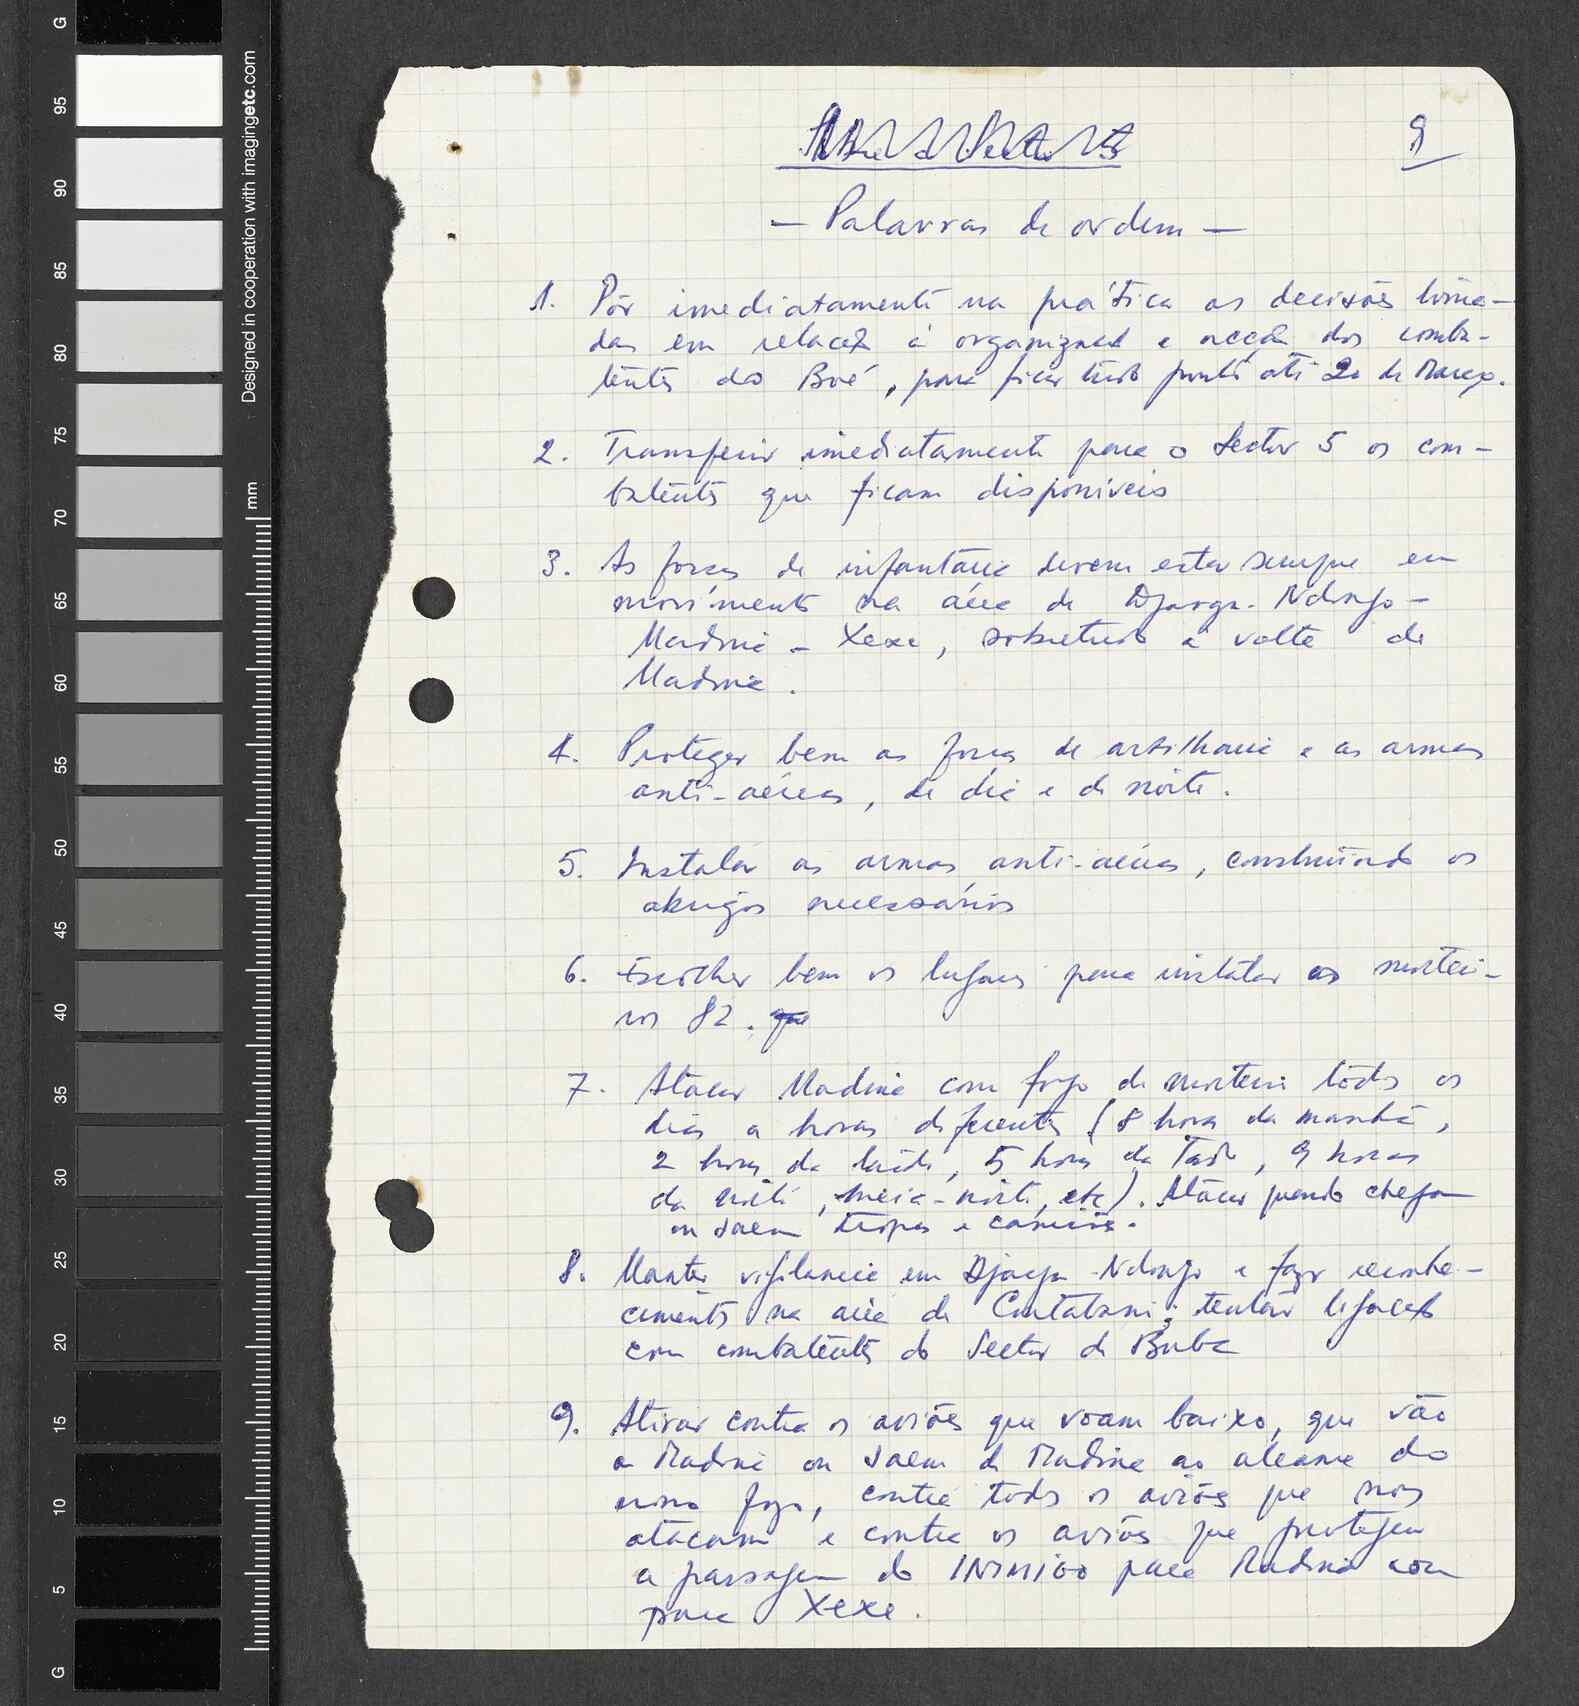 9
— Palavras de ordem —
1. Pôr imediatamente na prática as decisões toma-
das em relação à organização e acção dos comba-
tentes do Boé, para ficar tudo pronto até 20 de Março.
2. Transferir imediatamente para o Sector 5 os com-
batentes que ficam disponíveis
3. As forças de infantaria devem estar sempre em
movimento na área de Djarga-Ndongo-
Madina - Xexe, sobretudo à volta de
Madina.
4. Proteger bem as forças de artilharia e as armas
anti-aéreas, de dia e de noite.
5. Instalar as armas anti-aéreas, construindo os
abrigos necessários
6. Escolher bem os lugares para instalar os mortei-
ros 82. que
7. Atacar Madina com fogo de morteiro todos os
dias a horas diferentes (8 horas da manhã,
2 horas da tarde, 5 horas da tarde, 9 horas
da noite, meia-noite, etc). Atacar quando chegam
ou saem tropas e camiões.
8. Manter vigilancia em Djarga-Ndongo e fazer reconhe-
cimentos na area de Contabani; tentar ligação
com combatentes do Sector de Buba
9. Atirar contra os aviões que voam baixo, que vão
a Madina ou saem de Madina ao alcance do
nosso fogo, contra todos os aviões que nos
atacam e contra os aviões que protegem
a passagem do INIMIGO para Madina ou
para Xexe.
Designed in cooperation with imagingetc.com
mm
G
95
90
85
80
75
70
65
60
55
50
45
40
35
30
25
20
15
10
5
G